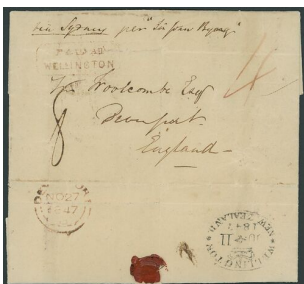 via Sydney per "Sir John Byng"
PAID AT
WELLINGTON
Woolcombe Esqr
Devonport
England
8
4
NO 27
1847
NEW ZEALAND
1847
11
WELLINGTON